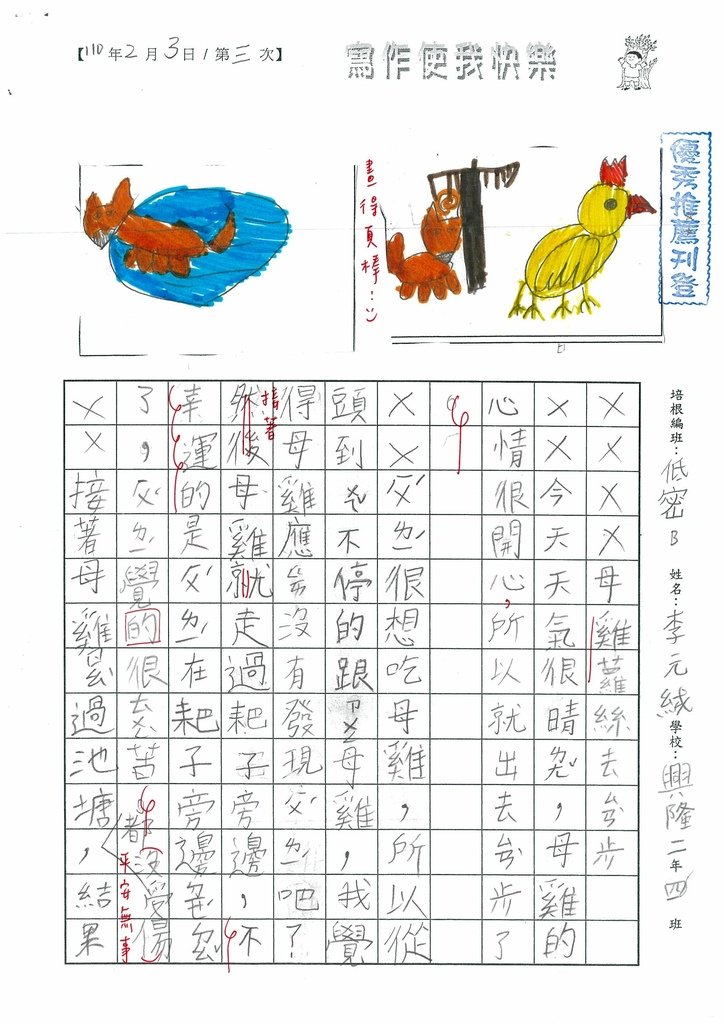 【110年2月3日/第三次】
寫作使我快樂
優秀推薦刊登
畫得真棒：
培根編班：低密B 姓名：李元絨 學校：興隆二年四班
×××母雞蘿絲去ㄙㄢˋ步
××今天天氣很晴ㄌㄤˇ，母雞的
心情很開心，所以就出去ㄙㄢˋ步了
××ㄈㄨˊㄌㄧˊ很想吃母雞，所以從
頭到ㄨㄟˇ不停的跟ㄗㄨㄥ母雞，我覺
得母雞應ㄍㄞ沒有發現ㄈㄨˊㄌㄧˊ吧了
然後母雞就走過耙子旁邊，不
接著
幸運的是ㄈㄨˊㄌㄧˊ在耙子旁邊ㄕㄡˋ
了，ㄈㄨˊㄌㄧˊ覺的很ㄊㄨㄥˋ苦
都沒受傷
平安無事
××接著母雞ㄧㄡˋ過池塘，結果